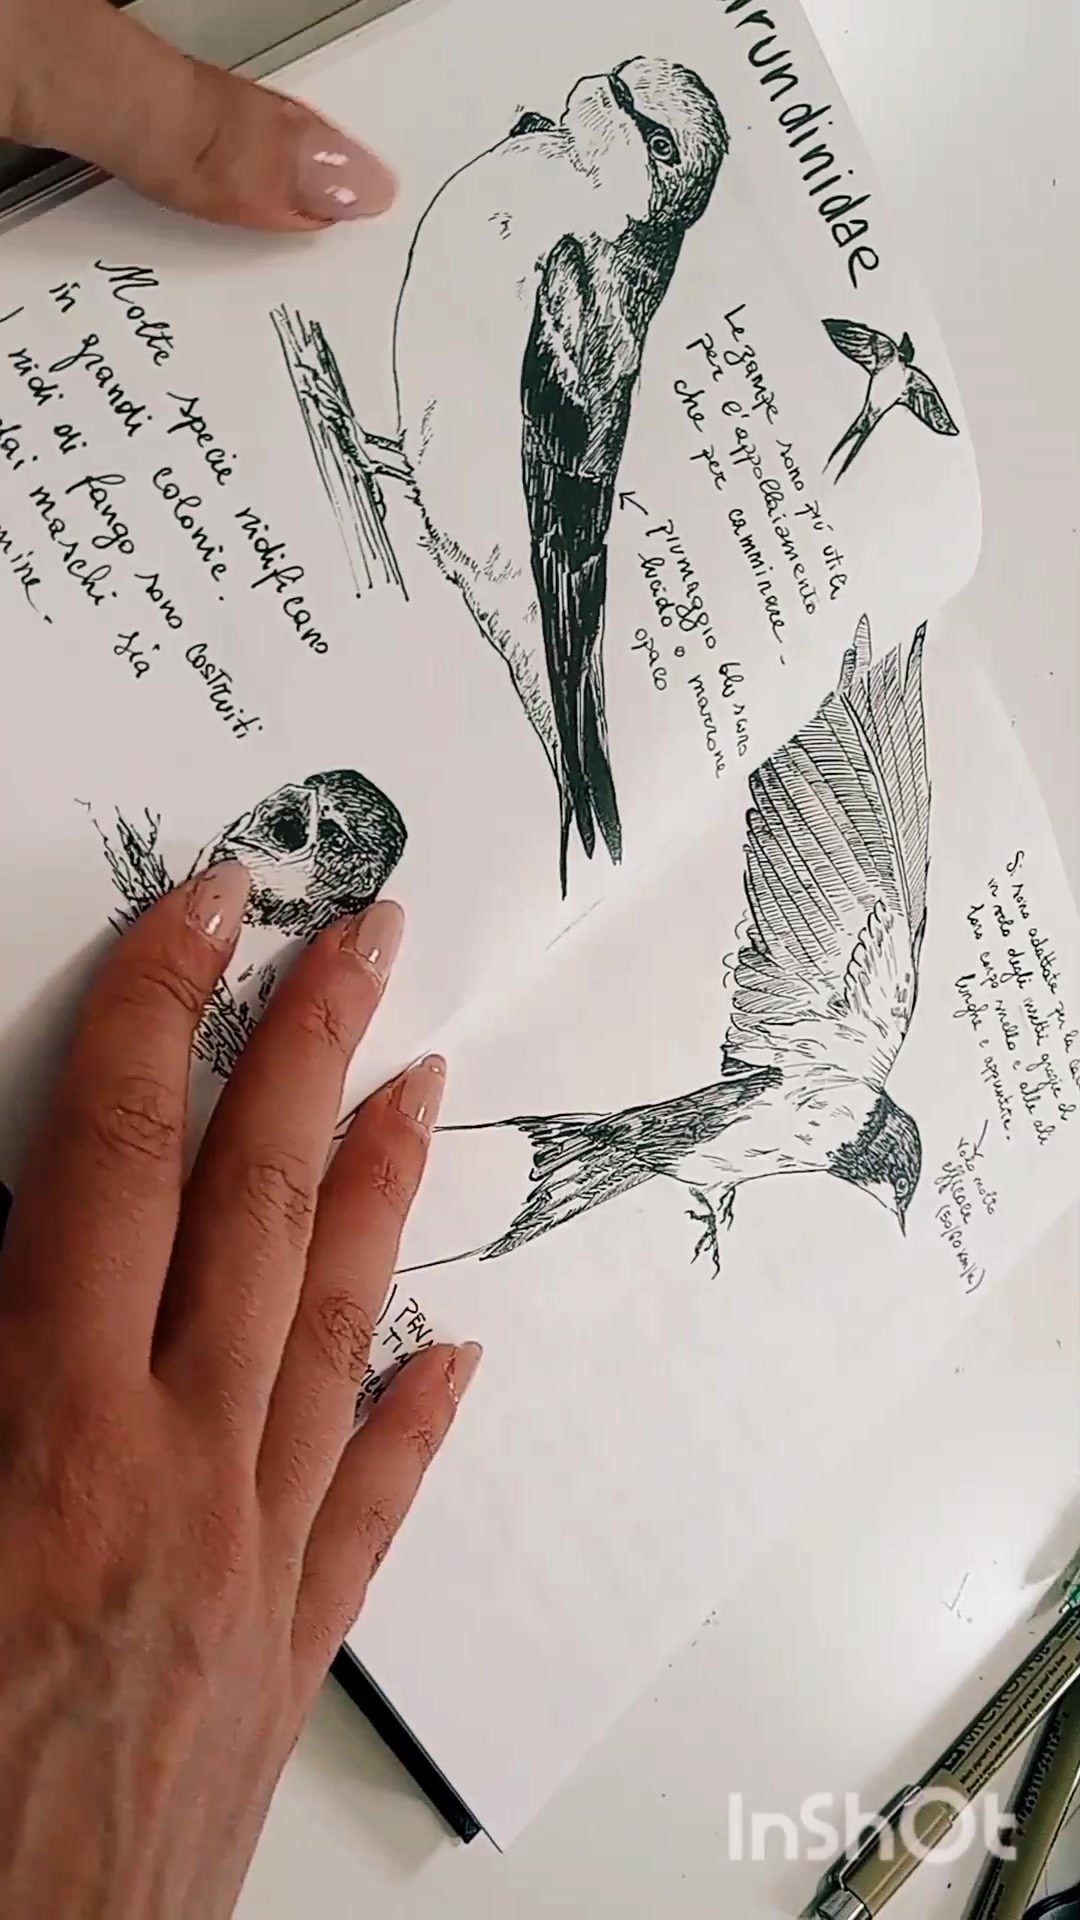 irundinidae
Molte specie nidificano
in grandi colonie.
I nidi di fango sono costruiti
dai maschi sia
mine.
Le zampe sono più utili
per l'appollaiamento
che per camminare.
piumaggio blu scuro
lucido o marrone
opaco
Si sono adattate per la
in volo degli insetti grazie al
loro corpo snello e alle ali
lunghe e appuntite.
volo molto
efficace
(50/60 km/h)
PEN
TIM
men
InShOt